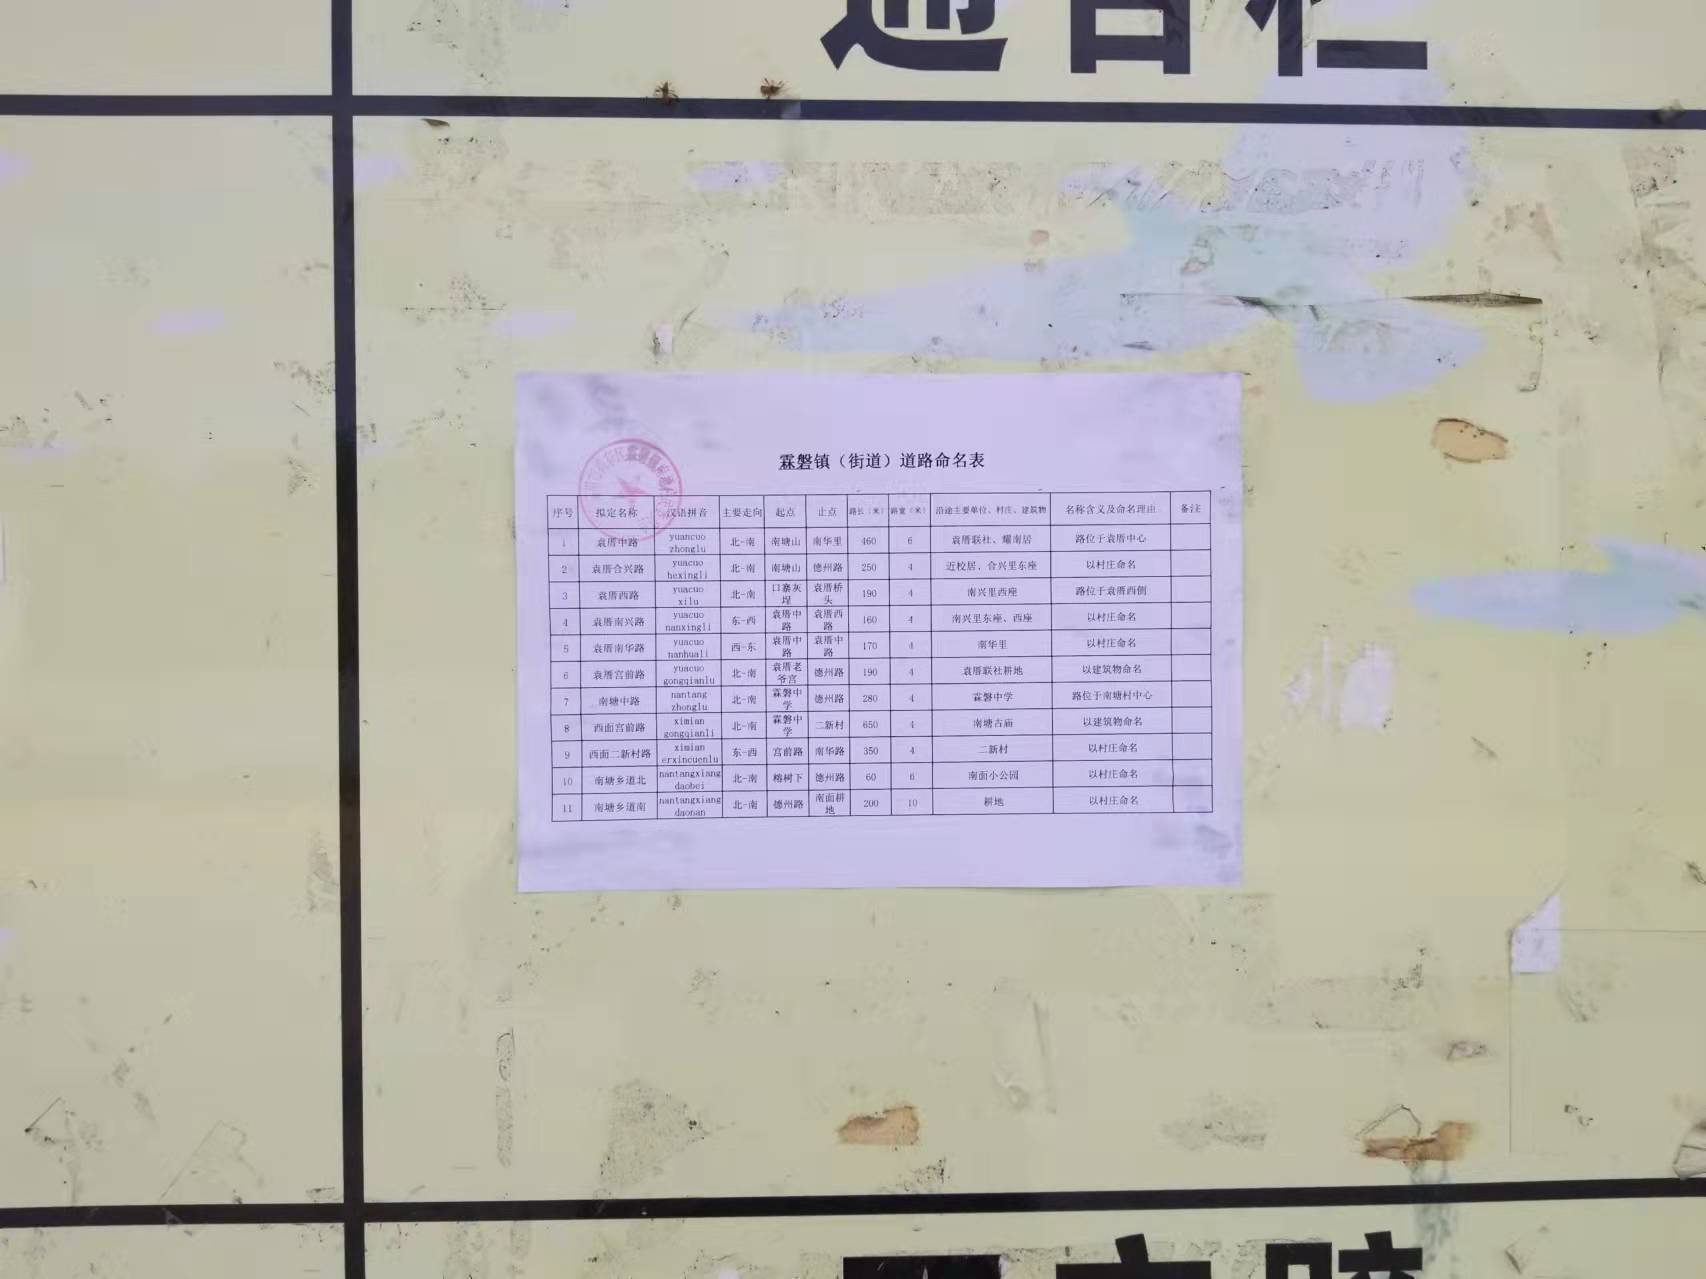 通告栏
霖磐镇（街道）道路命名表
序号 拟定名称 汉语拼音 主要走向 起点 止点 路长（米） 路宽（米） 沿途主要单位、村庄、建筑物 名称含义及命名理由 备注
1 袁厝中路 yuancuo zhonglu 北-南 南塘山 南华里 460 6 袁厝联社、耀南居 路位于袁厝中心
2 袁厝合兴路 yuacuo hexingli 北-南 南塘山 德州路 250 4 近校居、合兴里东座 以村庄命名
3 袁厝西路 yuacuo xilu 北-南 口寨灰埕 袁厝桥头 190 4 南兴里西座 路位于袁厝西侧
4 袁厝南兴路 yuacuo nanxingli 东-西 袁厝中路 袁厝西路 160 4 南兴里东座、西座 以村庄命名
5 袁厝南华路 yuacuo nanhuali 西-东 袁厝中路 袁厝中路 170 4 南华里 以村庄命名
6 袁厝宫前路 yuacuo gongqianlu 北-南 袁厝老爷宫 德州路 190 4 袁厝联社耕地 以建筑物命名
7 南塘中路 nantang zhonglu 北-南 霖磐中学 德州路 280 4 霖磐中学 路位于南塘村中心
8 西面宫前路 ximian gongqianli 北-南 霖磐中学 二新村 650 4 南塘古庙 以建筑物命名
9 西面二新村路 ximian erxincuenlu 东-西 宫前路 南华路 350 4 二新村 以村庄命名
10 南塘乡道北 nantangxiang daobei 北-南 榕树下 德州路 60 6 南面小公园 以村庄命名
11 南塘乡道南 nantangxiang daonan 北-南 德州路 南面耕地 200 10 耕地 以村庄命名